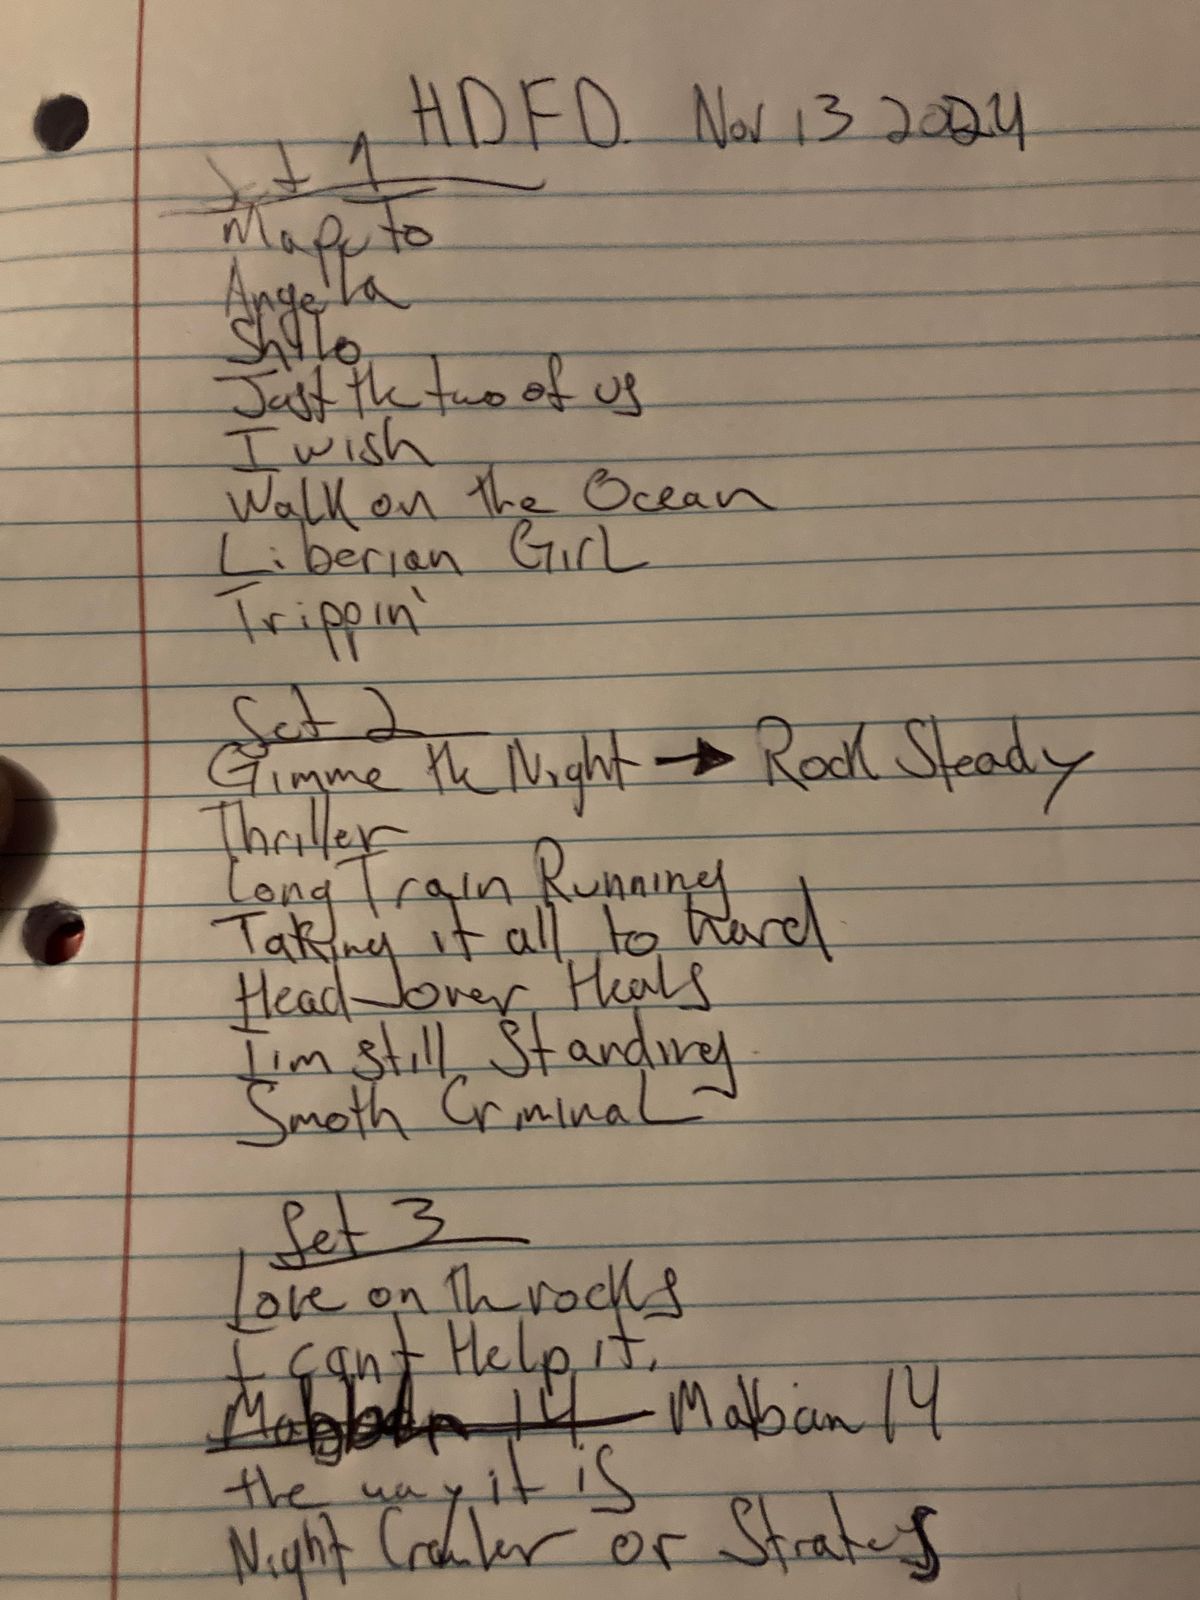 HDFD. Nov 13 2024
Set 1
Maputo
Angela
Shylo
Just the two of us
I wish
Walk on the Ocean
Liberian Girl
Trippin'
Set 2
Gimme the Night → Rock Steady
Thriller
Long Train Running
Taking it all to hard
Head over Heals
I'm still Standing
Smoth Criminal
Set 3
Love on th rocks
I can't Help it.
14 Malbian 14
the way it is
Night Crawler or Stratus